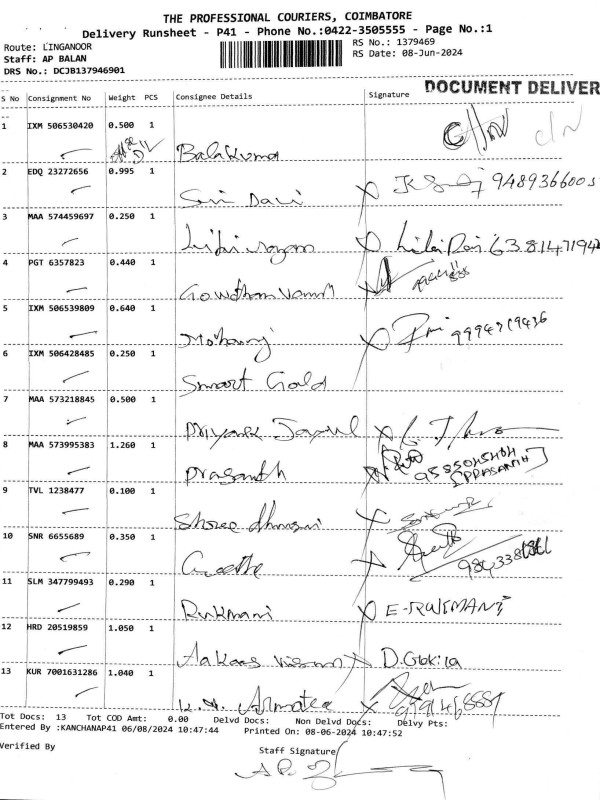 THE PROFESSIONAL COURIERS, COIMBATORE
Delivery Runsheet - P41 - Phone No.:0422-3505555 - Page No.:1
Route: LINGANOOR
RS No.: 1379469
Staff: AP BALAN
RS Date: 08-Jun-2024
DRS No.: DCJB137946901
DOCUMENT DELIVER
S No Consignment No Weight PCS Consignee Details Signature
1 IXM 506530420 0.500 1
Balakumar
2 EDQ 23272656 0.995 1
Sri Davi X 9489366005
3 MAA 574459697 0.250 1
X
4 PGT 6357823 0.440 1
X
5 IXM 506539809 0.640 1
Mohanraj X 9994219436
6 IXM 506428485 0.250 1
Smart Gold
7 MAA 573218845 0.500 1
X
8 MAA 573995383 1.260 1
Prasanth X [PRASANTH]
9 TVL 1238477 0.100 1
Shree X
10 SNR 6655689 0.350 1
Geetha X
11 SLM 347799493 0.290 1
Rukmani X E-RUKMANI
12 HRD 20519859 1.050 1
Aakaas X D.Gokila
13 KUR 7001631286 1.040 1
X
Tot Docs: 13 Tot COD Amt: 0.00 Delvd Docs: Non Delvd Docs: Delvy Pts:
Entered By :KANCHANAP41 06/08/2024 10:47:44 Printed On: 08-06-2024 10:47:52
Verified By
Staff Signature